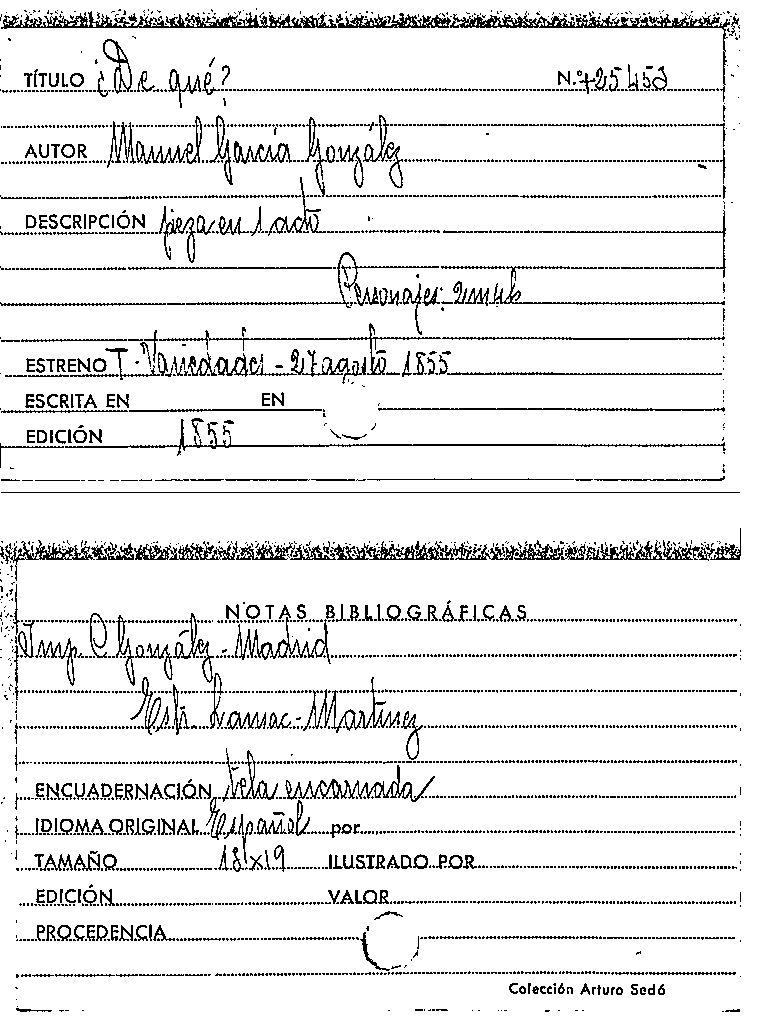 TÍTULO ¿De qué? N.º 425453
AUTOR Manuel García González
DESCRIPCIÓN pieza en 1 acto
Personajes: 2m4h
ESTRENO T. Variedades - 27 agosto 1855
ESCRITA EN EN
EDICIÓN 1855
NOTAS BIBLIOGRÁFICAS
Imp. C. González - Madrid
Martínez
ENCUADERNACIÓN tela encarnada
IDIOMA ORIGINAL Español por
TAMAÑO 13'x19 ILUSTRADO POR
EDICIÓN VALOR
PROCEDENCIA
Colección Arturo Sedó